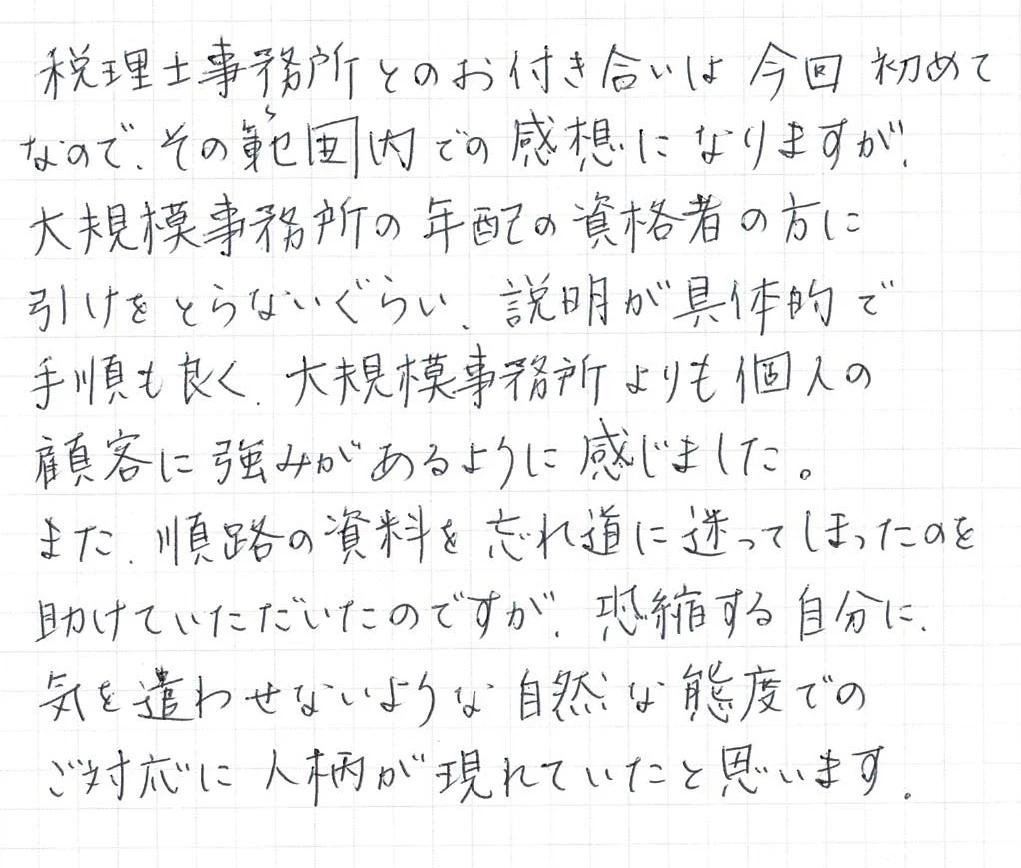 税理士事務所とのお付き合いは今回初めて
なので、その範囲内での感想になりますが、
大規模事務所の年配の資格者の方に
引けをとらないぐらい、説明が具体的で
手順も良く、大規模事務所よりも個人の
顧客に強みがあるように感じました。
また、順路の資料を忘れ道に迷ってしまったのを
助けていただいたのですが、恐縮する自分に、
気を遣わせないような自然な態度での
ご対応に人柄が現れていたと思います。